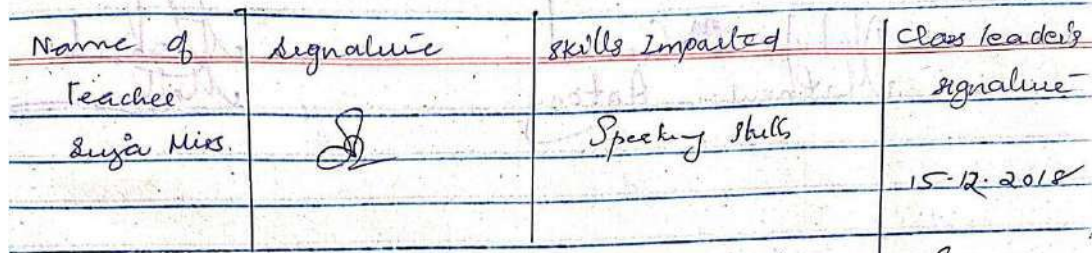 Name of Signature Skills Imparted Class leader's
Teacher signature
Suja Miss. Speaking Skills
15-12-2018